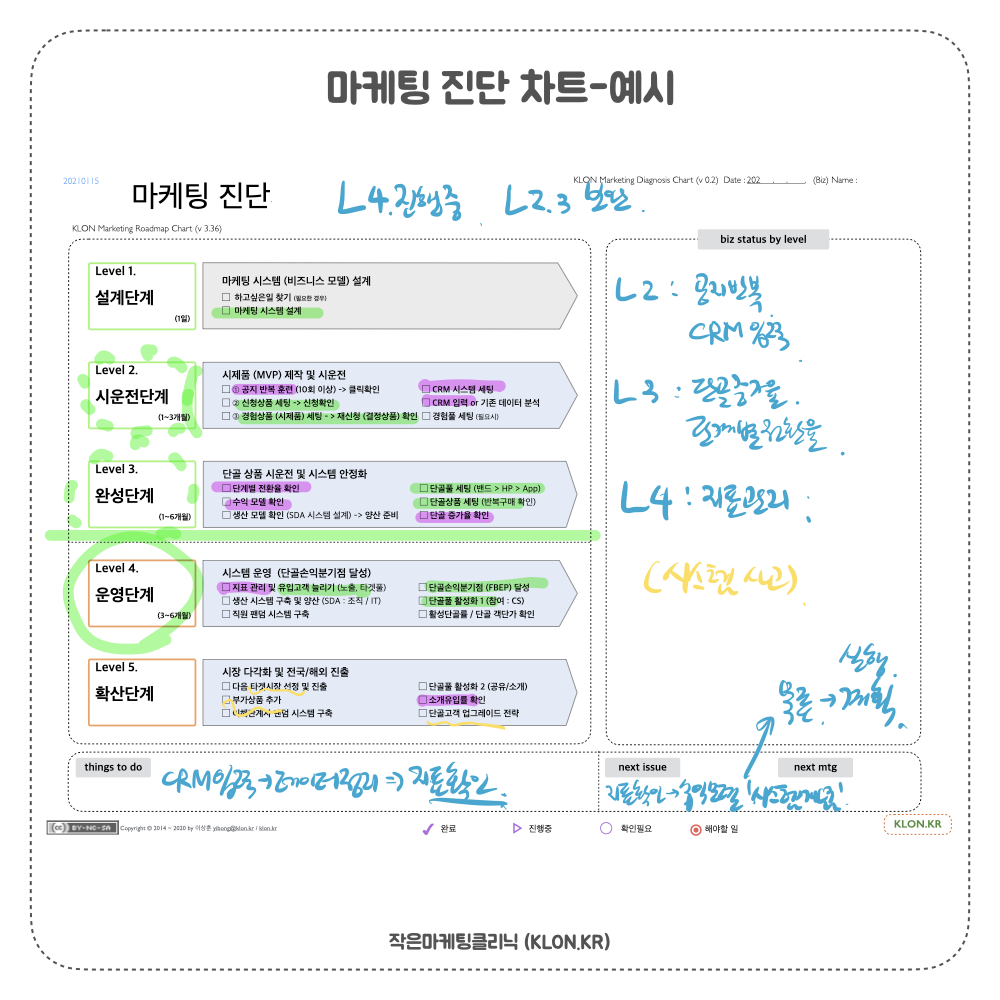 마케팅 진단 차트-예시
20210115
마케팅 진단
L4. 진행중 L2.3 보완.
KLON Marketing Diagnosis Chart (v 0.2) Date : 202__.__.__. (Biz) Name :
KLON Marketing Roadmap Chart (v 3.36)
Level 1.
설계단계
(1일)
마케팅 시스템 (비즈니스 모델) 설계
☐ 하고싶은일 찾기 (필요한 경우)
☐ 마케팅 시스템 설계
Level 2.
시운전단계
(1~3개월)
시제품 (MVP) 제작 및 시운전
☐ ① 공지 반복 훈련 (10회 이상) -> 클릭확인
☐ ② 신청상품 세팅 -> 신청확인
☐ ③ 경험상품 (시제품) 세팅 - > 재신청 (결정상품) 확인
☐ CRM 시스템 세팅
☐ CRM 입력 or 기존 데이터 분석
☐ 경험풀 세팅 (필요시)
Level 3.
완성단계
(1~6개월)
단골 상품 시운전 및 시스템 안정화
☐ 단계별 전환율 확인
☐ 수익 모델 확인
☐ 생산 모델 확인 (SDA 시스템 설계) -> 양산 준비
☐ 단골풀 세팅 (밴드 > HP > App)
☐ 단골상품 세팅 (반복구매 확인)
☐ 단골 증가율 확인
Level 4.
운영단계
(3~6개월)
시스템 운영 (단골손익분기점 달성)
☐ 지표 관리 및 유입고객 늘리기 (노출, 타겟풀)
☐ 생산 시스템 구축 및 양산 (SDA : 조직 / IT)
☐ 직원 팬덤 시스템 구축
☐ 단골손익분기점 (FBEP) 달성
☐ 단골풀 활성화 1 (참여 : CS)
☐ 활성단골률 / 단골 객단가 확인
Level 5.
확산단계
시장 다각화 및 전국/해외 진출
☐ 다음 타겟시장 선정 및 진출
☐ 부가상품 추가
☐ 이해관계자 팬덤 시스템 구축
☐ 단골풀 활성화 2 (공유/소개)
☐ 소개유입률 확인
☐ 단골고객 업그레이드 전략
biz status by level
L2 : 공지반복.
CRM 입력.
L3 : 단골증가율.
단계별전환율.
L4 : 지표관리.
(시스템 사고)
실행.
목표 → 계획.
things to do
CRM입력→데이터정리 => 지표확인.
next issue
next mtg
지표확인→수익모델
BY-NC-SA
Copyright © 2014 ~ 2020 by 이상훈 yibong@klon.kr / klon.kr
완료
진행중
확인필요
해야할 일
KLON.KR
작은마케팅클리닉 (KLON.KR)